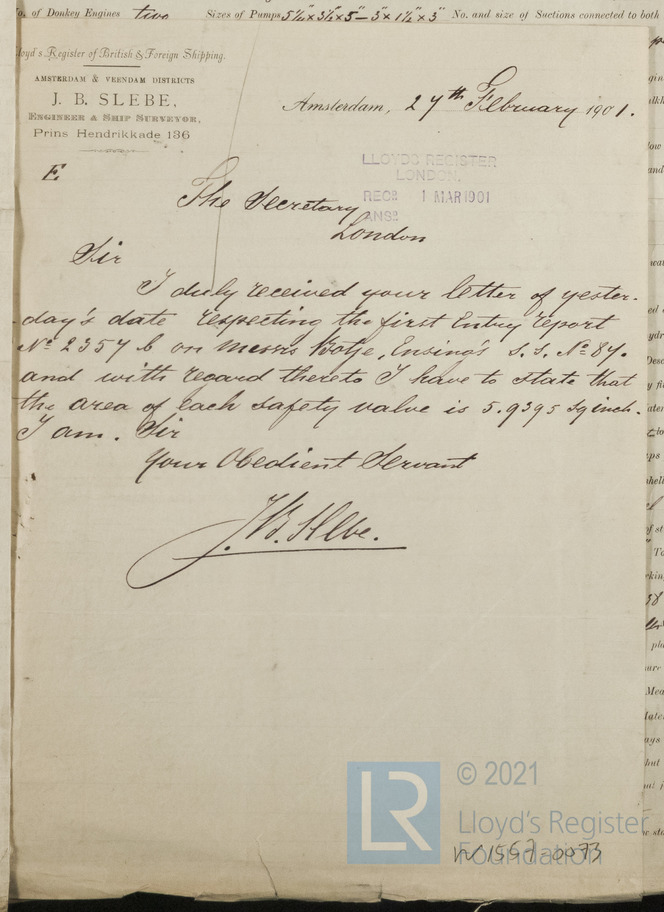 No. of Donkey Engines two Sizes of Pumps 5½"x3½"x5"–3"x1½"x3" No. and size of Suctions connected to both
Lloyd's Register of British & Foreign Shipping.
AMSTERDAM & VEENDAM DISTRICTS
J. B. SLEBE,
ENGINEER & SHIP SURVEYOR,
Prins Hendrikkade 136
Amsterdam, 27th February 1901.
E
LLOYD'S REGISTER
LONDON.
RECD 1 MAR 1901
ANSD
The Secretary
London
Sir
I duly received your letter of yester-
day's date respecting the first Entry report
No 2357 b on Messrs Botje, Ensing's S.S. No 84.
and with regard thereto I have to state that
the area of each safety valve is 5.9395 sq inch.
I am. Sir
Your Obedient Servant
J.B. Slebe.
LR
© 2021
Lloyd's Register
Foundation
W1557-0073